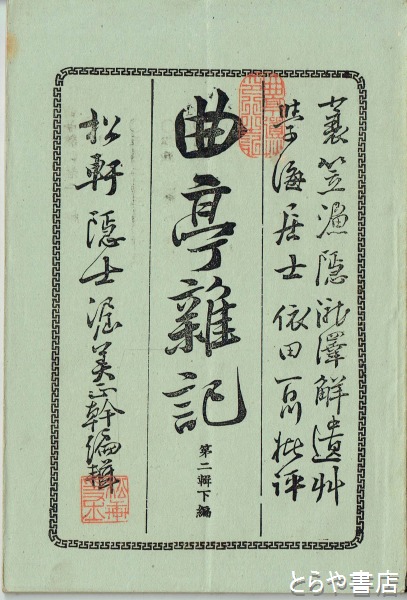 蓑笠漁隠瀧澤解遺艸
學海居士依田百川批評
曲亭雑記
第二輯下編
松軒隠士渥美正幹編輯
とらや書店